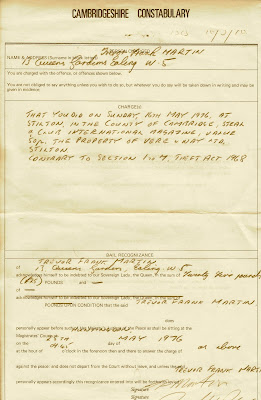 CAMBRIDGESHIRE CONSTABULARY
MARTIN
NAME & ADDRESS
13 Queens Gardens Ealing W.5
You are charged with the offence, or offences shown below.
You are not obliged to say anything unless you wish to do so, but whatever you do say will be taken down in writing and may be
given in evidence.
CHARGE(S)
THAT YOU DID ON SUNDAY, 16TH MAY 1976, AT
STILTON, IN THE COUNTY OF CAMBRIDGE, STEAL
A CLUB INTERNATIONAL MAGAZINE, VALUE
50p, THE PROPERTY OF
STILTON
CONTRARY TO SECTION 1 & 7, THEFT ACT 1968
BAIL RECOGNIZANCE
TREVOR FRANK MARTIN
of 13 Queens Gardens, Ealing W5
acknowledge himself to be indebted to our Sovereign Lady, the Queen, in the sum of Twenty five pounds
(£25) POUNDS and
of
acknowledge himself to be indebted to our Sovereign Lady, the Queen
POUNDS UPON CONDITION that the said TREVOR FRANK MARTIN
does
personally appear before the Peace as shall be sitting at the
Magistrates'
on the day of MAY 1976
at the hour of 9.45 o'clock in the forenoon then and there to answer the charge of as above
against the peace and does not depart from the Court without leave, and unless TREVOR FRANK
personally appears accordingly this recognizance entered into will be forthwith